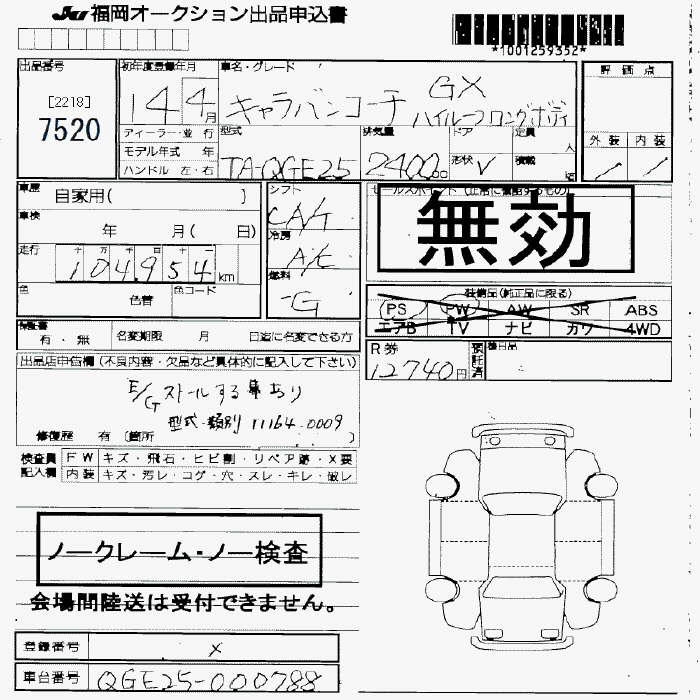 JU 福岡オークション出品申込書
*1001259352*
出品番号
[2218]
7520
初年度登録年月
14 4月
車名・グレード
GX
キャラバンコーチ ハイルーフロングボディ
評価点
外装 内装
ディーラー・並行
モデル年式 年
ハンドル 左・右
型式
TA-QGE25
排気量
2400 cc
ドア
形状 V
定員 人
積載
車歴
自家用( )
車検
年 月( 日)
走行
十 万 千 百 十 一
104954 km
色
色替
色コード
シフト
CA/T
冷房
A/C
燃料
G
セールスポイント(正常に機能するもの)
無効
装備品(純正品に限る)
PS PW AW SR ABS
エアB TV ナビ カワ 4WD
保証書
有・無
名変期限 月 日迄に名変できる方
R券
12740円
預託済
後日品
出品店申告欄(不良内容・欠品など具体的に記入して下さい)
E/Gストールする事あり
型式・類別 11164-0009
修復歴 有(箇所 )
検査員記入欄
FW キズ・飛石・ヒビ割・リペア跡・X要
内装 キズ・汚レ・コゲ・穴・スレ・キレ・破レ
ノークレーム・ノー検査
会場間陸送は受付できません。
登録番号 X
車台番号 QGE25-000788